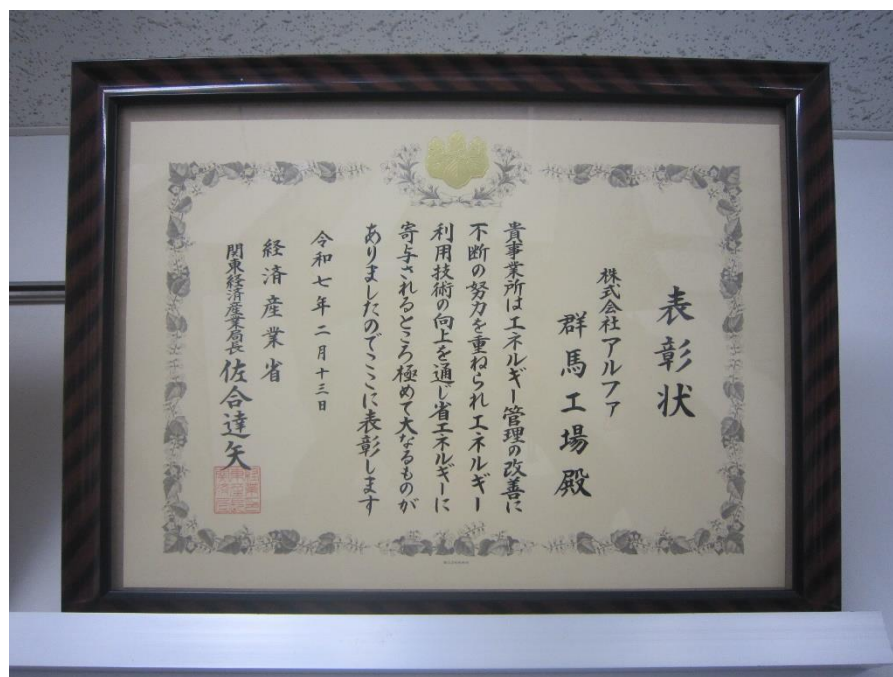 表彰状
株式会社アルファ
群馬工場殿
貴事業所はエネルギー管理の改善に
不断の努力を重ねられエネルギー
利用技術の向上を通じ省エネルギーに
寄与されるところ極めて大なるものが
ありましたのでここに表彰します
令和七年二月十三日
経済産業省
関東経済産業局長 佐合達矢